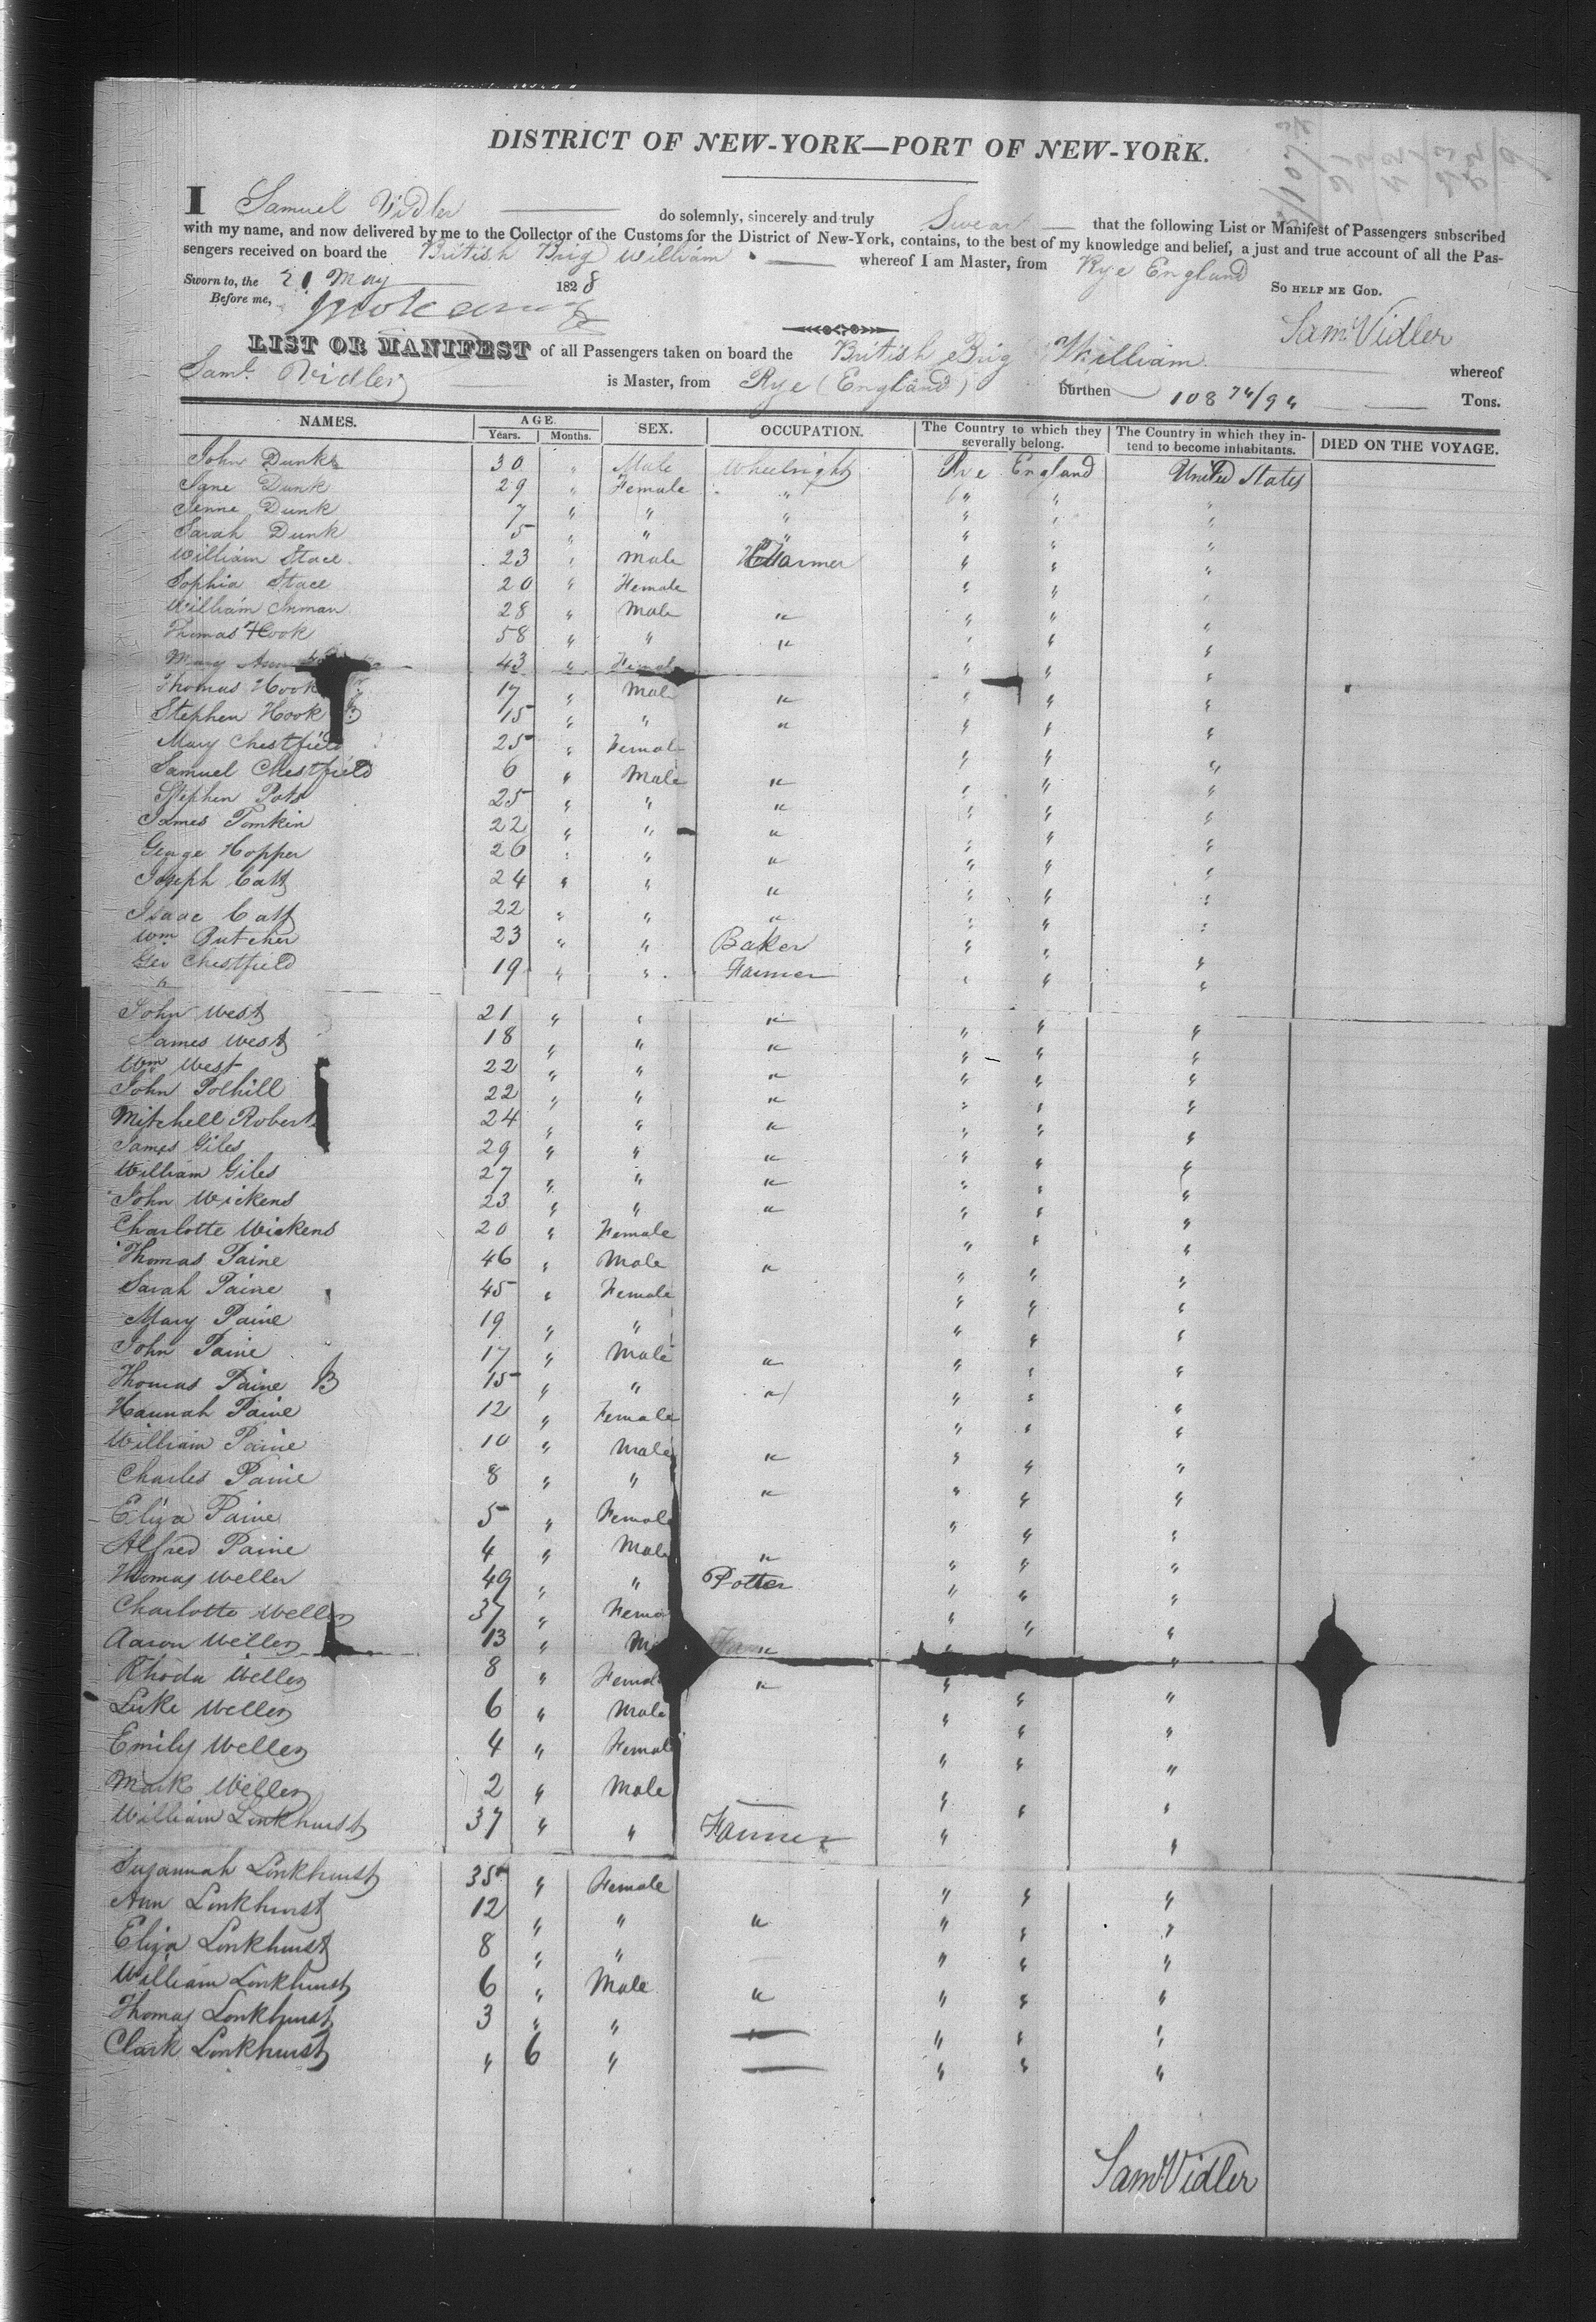 DISTRICT OF NEW-YORK—PORT OF NEW-YORK.
I Samuel Vidler do solemnly, sincerely and truly Swear that the following List or Manifest of Passengers subscribed
with my name, and now delivered by me to the Collector of the Customs for the District of New-York, contains, to the best of my knowledge and belief, a just and true account of all the Pas-
sengers received on board the British Brig William whereof I am Master, from Rye England
Sworn to, the 21 May 1828 SO HELP ME GOD.
Before me,
Saml Vidler
LIST OR MANIFEST of all Passengers taken on board the British Brig William whereof
Saml. Vidler is Master, from Rye (England) burthen 108 74/94 Tons.
NAMES. AGE. SEX. OCCUPATION. The Country to which they severally belong. The Country in which they in-tend to become inhabitants. DIED ON THE VOYAGE.
Years. Months.
John Dunk 30 " Male Wheelright Rye England United States
Jane Dunk 29 " Female " " " "
Jenne Dunk 7 " " " " " "
Sarah Dunk 5 " " " " " "
William Stace 23 " Male Farmer " " "
Sophia Stace 20 " Female " " "
William Inman 28 " Male " " " "
Thomas Hook 58 " " " " " "
Mary Ann 43 " Female " " "
Thomas Hook 17 " Male " " " "
Stephen Hook B 15 " " " " " "
Mary Chestfield 25 " Female " " "
Samuel Chestfield 6 " Male " " " "
Stephen Pots 25 " " " " " "
James Tomkin 22 " " " " " "
George Hopper 26 " " " " " "
Joseph Catt 24 " " " " " "
Isaac Catt 22 " " " " " "
Wm Butcher 23 " " Baker " " "
Geo Chestfield 19 " " Farmer " " "
John West 21 " " " " " "
James West 18 " " " " " "
Wm West 22 " " " " " "
John Polhill 22 " " " " " "
Mitchell Robert 24 " " " " " "
James Giles 29 " " " " " "
William Giles 27 " " " " " "
John Wickens 23 " " " " " "
Charlotte Wickens 20 " Female " " "
Thomas Paine 46 " Male " " " "
Sarah Paine 45 " Female " " "
Mary Paine 19 " " " " "
John Paine 17 " Male " " " "
Thomas Paine B 15 " " " " " "
Hannah Paine 12 " Female " " "
William Paine 10 " Male " " " "
Charles Paine 8 " " " " " "
Eliza Paine 5 " Female " " "
Alfred Paine 4 " Male " " " "
Thomas Weller 49 " " Potter " " "
Charlotte Weller 37 " Fema " " "
Aaron Weller 13 " M " "
Rhoda Weller 8 " Female " " " "
Luke Weller 6 " Male " " "
Emily Weller 4 " Female " " "
Mark Weller 2 " Male " " "
William Linkhurst 37 " " Farmer " "
Suzannah Linkhurst 35 " Female " " "
Ann Linkhurst 12 " " " " " "
Eliza Linkhurst 8 " " " " "
William Linkhurst 6 " Male " " " "
Thomas Linkhurst 3 " " — " " "
Clark Linkhurst " 6 " — " " "
Saml Vidler